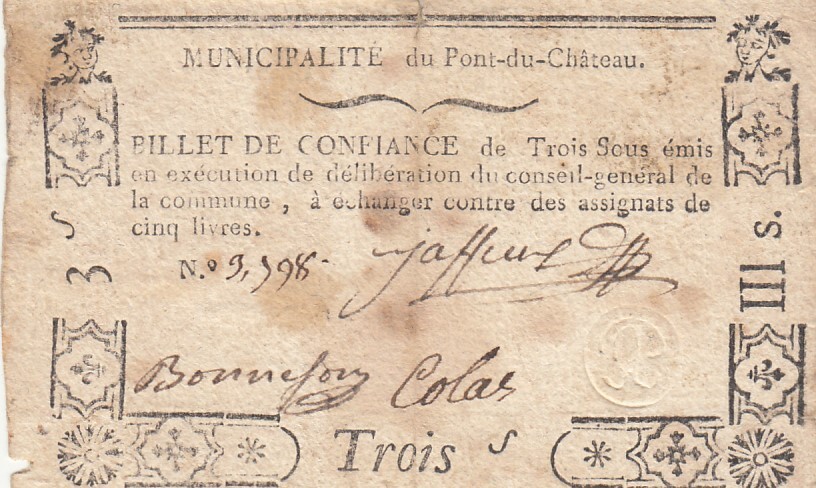 MUNICIPALITÉ du Pont-du-Château.
BILLET DE CONFIANCE de Trois Sous émis
en exécution de délibération du conseil-general de
la commune , à échanger contre des assignats de
cinq livres.
N.º 3,598
Bonnefoy Colas
3 s
III s.
Trois s